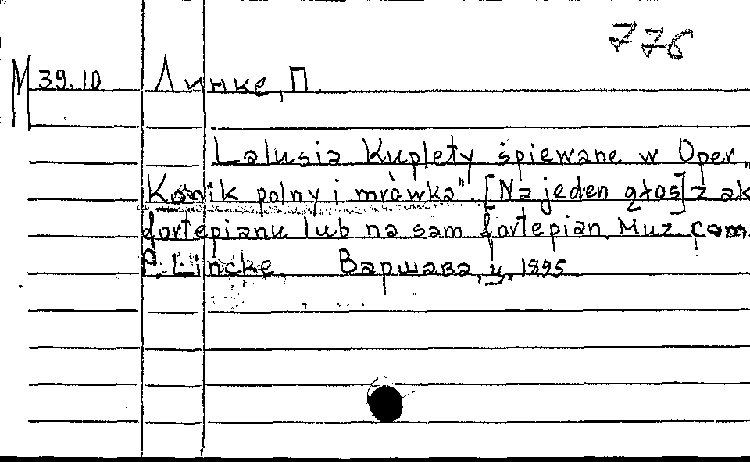 776
M 39.10 Линке, П
Lalusia Kuplety śpiewane w Oper.
Konik polny i mrówka". [Na jeden głos] z ak
fortepianu lub na sam fortepian. Muz com.
P. Lincke. Варшава, ц. 1895